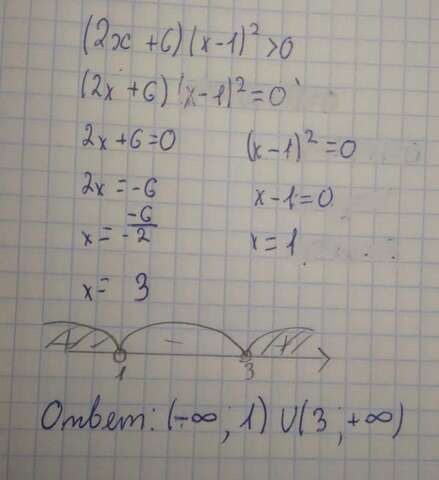 (2x + 6)(x - 1)² > 0
(2x + 6)(x - 1)² = 0
2x + 6 = 0 (x - 1)² = 0
2x = -6 x - 1 = 0
x = -6/-2 x = 1
x = 3
+ - +
1 3
Ответ: (-∞; 1) ∪ (3; +∞)